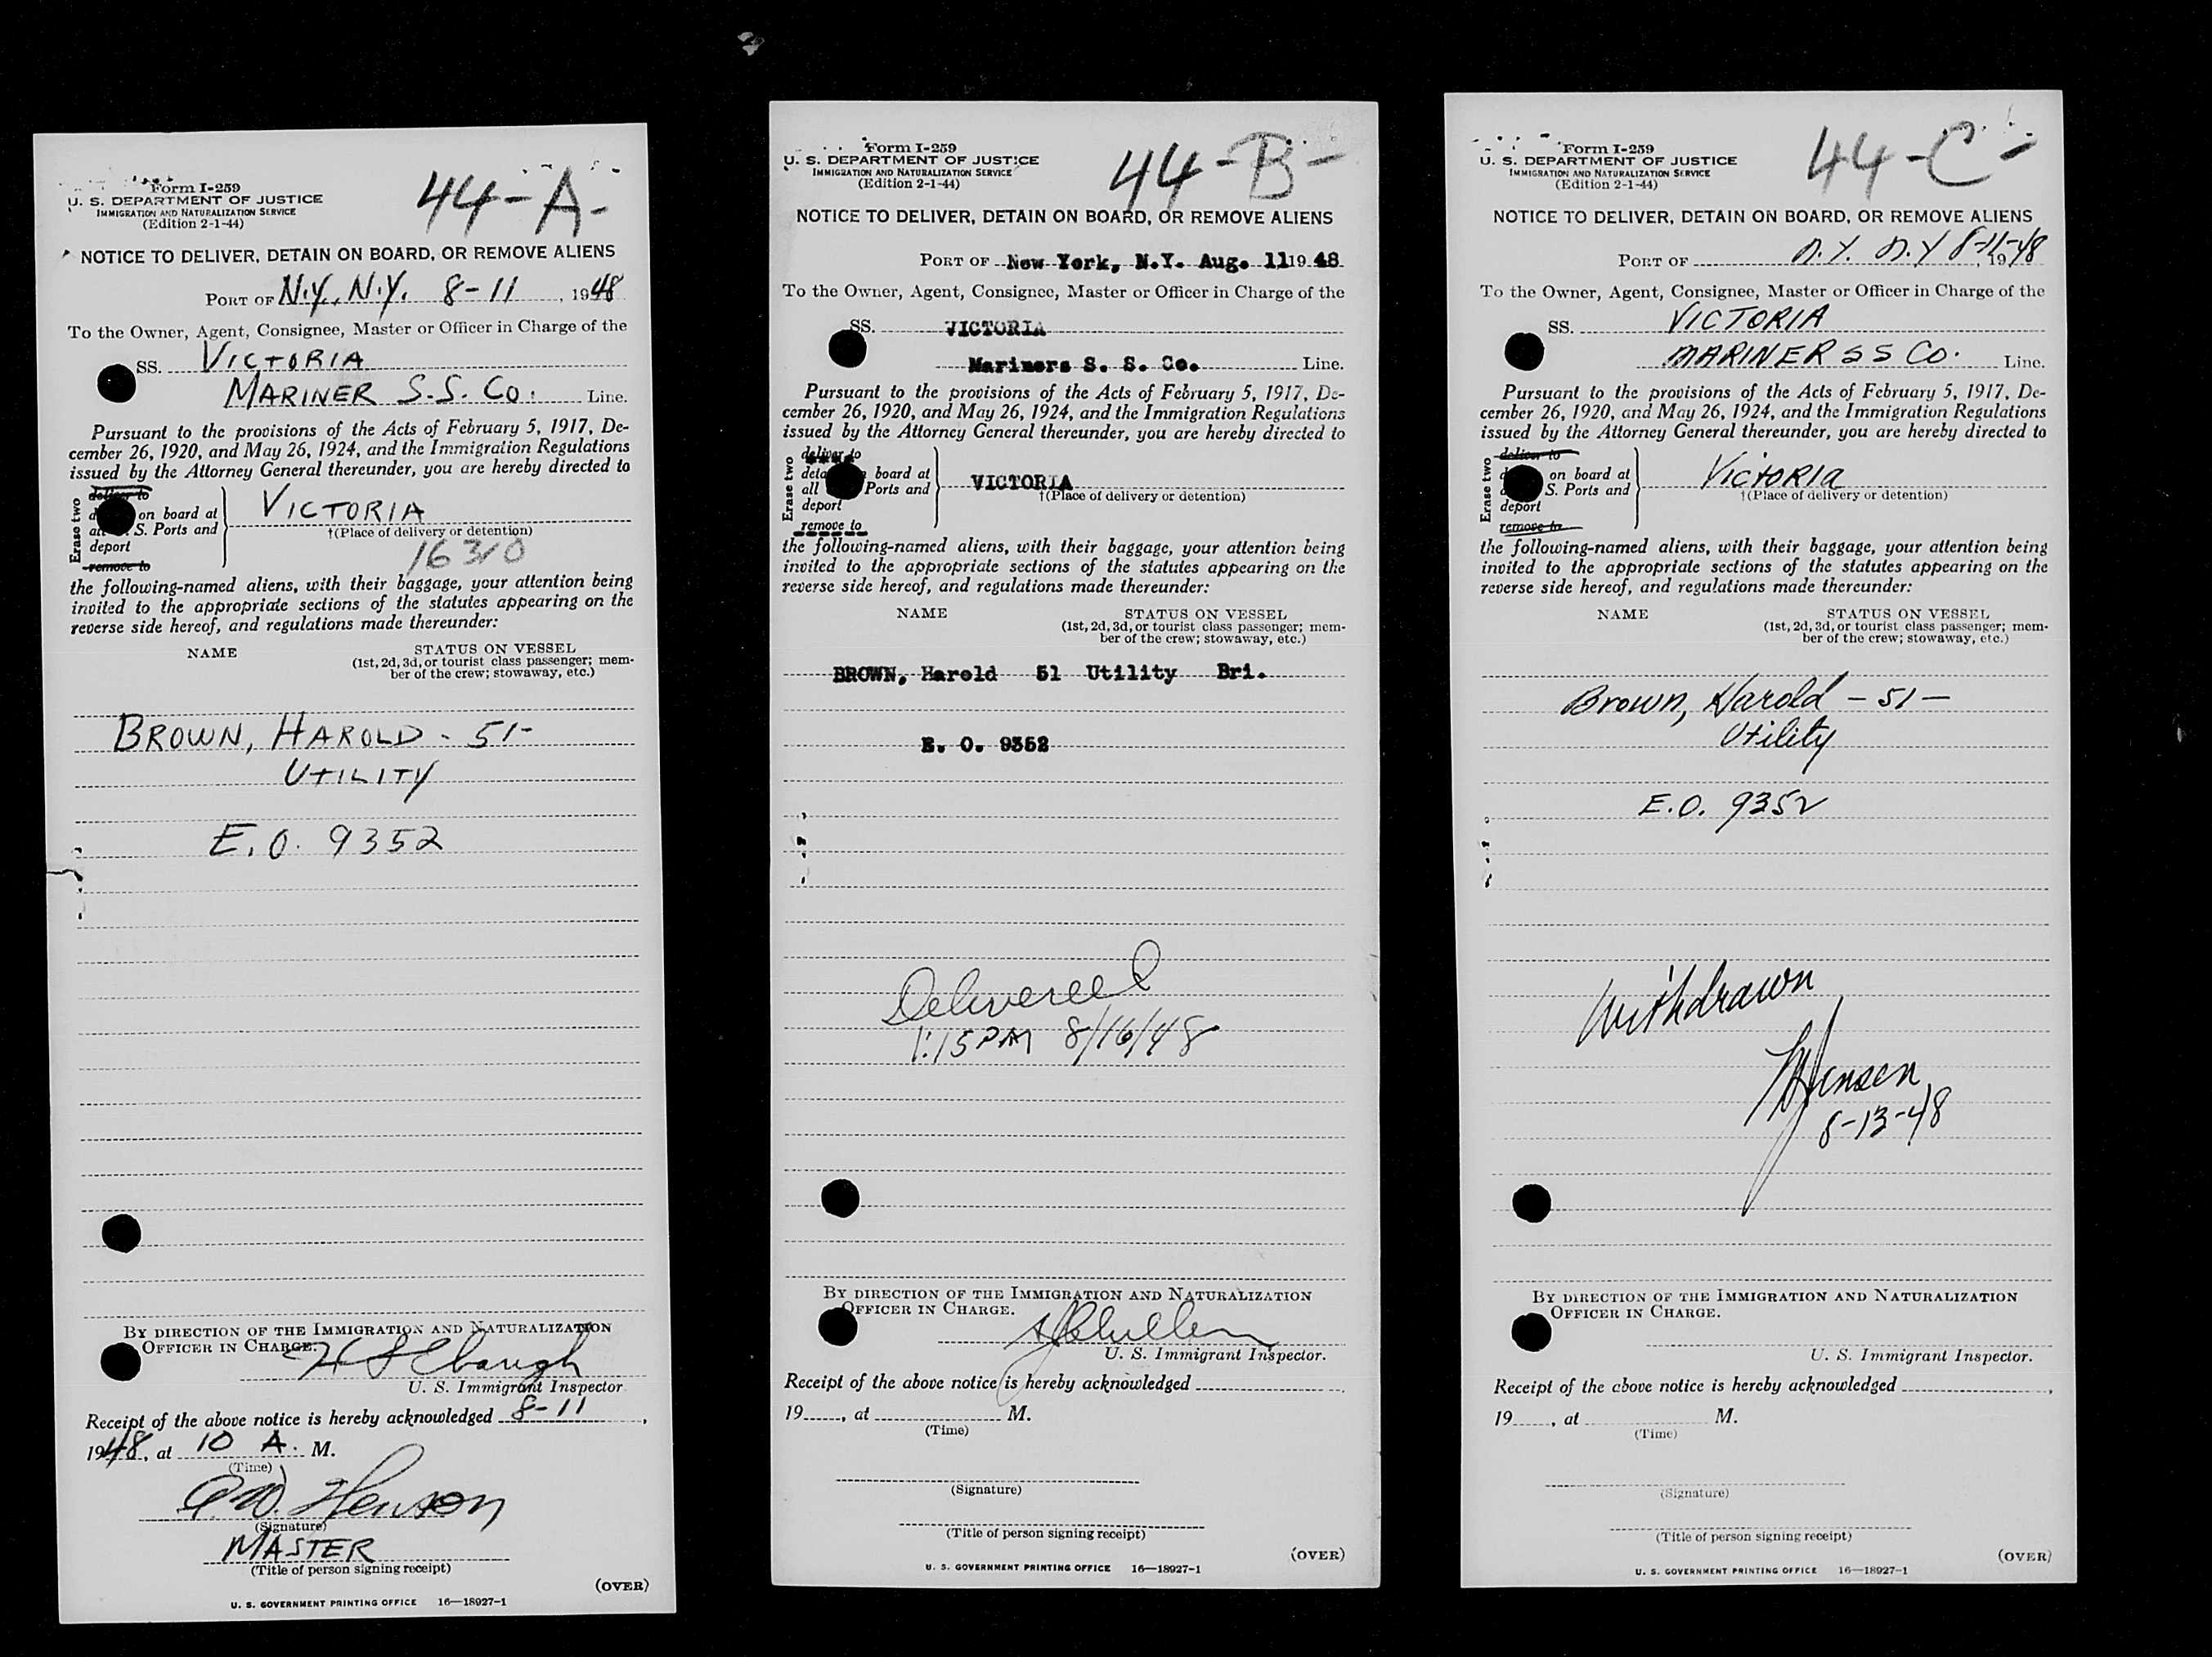 44-A-
Form I-259
U. S. DEPARTMENT OF JUSTICE
IMMIGRATION AND NATURALIZATION SERVICE
(Edition 2-1-44)
NOTICE TO DELIVER, DETAIN ON BOARD, OR REMOVE ALIENS
PORT OF N.Y., N.Y. 8-11, 1948
To the Owner, Agent, Consignee, Master or Officer in Charge of the
SS. VICTORIA
MARINER S.S. CO. Line.
Pursuant to the provisions of the Acts of February 5, 1917, De-
cember 26, 1920, and May 26, 1924, and the Immigration Regulations
issued by the Attorney General thereunder, you are hereby directed to
Erase two
deliver to
on board at
S. Ports and
deport
remove to
VICTORIA
†(Place of delivery or detention)
the following-named aliens, with their baggage, your attention being
invited to the appropriate sections of the statutes appearing on the
reverse side hereof, and regulations made thereunder:
NAME STATUS ON VESSEL
(1st, 2d, 3d, or tourist class passenger; mem-
ber of the crew; stowaway, etc.)
BROWN, HAROLD - 51-
UTILITY
E.O. 9352
BY DIRECTION OF THE IMMIGRATION AND NATURALIZATION
OFFICER IN CHARGE.
U. S. Immigrant Inspector
Receipt of the above notice is hereby acknowledged 8-11,
1948, at 10 A. M.
(Time)
Henson
(Signature)
MASTER
(Title of person signing receipt)
(OVER)
U. S. GOVERNMENT PRINTING OFFICE 16—18927-1
44-B-
Form I-259
U. S. DEPARTMENT OF JUSTICE
IMMIGRATION AND NATURALIZATION SERVICE
(Edition 2-1-44)
NOTICE TO DELIVER, DETAIN ON BOARD, OR REMOVE ALIENS
PORT OF New York, N.Y. Aug. 11 1948
To the Owner, Agent, Consignee, Master or Officer in Charge of the
SS. VICTORIA
Mariners S. S. Co. Line.
Pursuant to the provisions of the Acts of February 5, 1917, De-
cember 26, 1920, and May 26, 1924, and the Immigration Regulations
issued by the Attorney General thereunder, you are hereby directed to
Erase two
deliver to
board at
all Ports and
deport
remove to
VICTORIA
†(Place of delivery or detention)
the following-named aliens, with their baggage, your attention being
invited to the appropriate sections of the statutes appearing on the
reverse side hereof, and regulations made thereunder:
NAME STATUS ON VESSEL
(1st, 2d, 3d, or tourist class passenger; mem-
ber of the crew; stowaway, etc.)
BROWN, Harold 51 Utility Bri.
E. O. 9352
Delivered
1:15 PM 8/16/48
BY DIRECTION OF THE IMMIGRATION AND NATURALIZATION
OFFICER IN CHARGE.
U. S. Immigrant Inspector.
Receipt of the above notice is hereby acknowledged
19, at M.
(Time)
(Signature)
(Title of person signing receipt)
(OVER)
U. S. GOVERNMENT PRINTING OFFICE 16—18927-1
44-C-
Form I-259
U. S. DEPARTMENT OF JUSTICE
IMMIGRATION AND NATURALIZATION SERVICE
(Edition 2-1-44)
NOTICE TO DELIVER, DETAIN ON BOARD, OR REMOVE ALIENS
PORT OF N.Y. N.Y 8-11-48
To the Owner, Agent, Consignee, Master or Officer in Charge of the
SS. VICTORIA
MARINER S S CO. Line.
Pursuant to the provisions of the Acts of February 5, 1917, De-
cember 26, 1920, and May 26, 1924, and the Immigration Regulations
issued by the Attorney General thereunder, you are hereby directed to
Erase two
deliver to
on board at
S. Ports and
deport
remove to
Victoria
†(Place of delivery or detention)
the following-named aliens, with their baggage, your attention being
invited to the appropriate sections of the statutes appearing on the
reverse side hereof, and regulations made thereunder:
NAME STATUS ON VESSEL
(1st, 2d, 3d, or tourist class passenger; mem-
ber of the crew; stowaway, etc.)
Brown, Harold - 51 -
Utility
E.O. 9352
Withdrawn
Jensen
8-13-48
BY DIRECTION OF THE IMMIGRATION AND NATURALIZATION
OFFICER IN CHARGE.
U. S. Immigrant Inspector.
Receipt of the above notice is hereby acknowledged,
19, at M.
(Time)
(Signature)
(Title of person signing receipt)
(OVER)
U. S. GOVERNMENT PRINTING OFFICE 16—18927-1